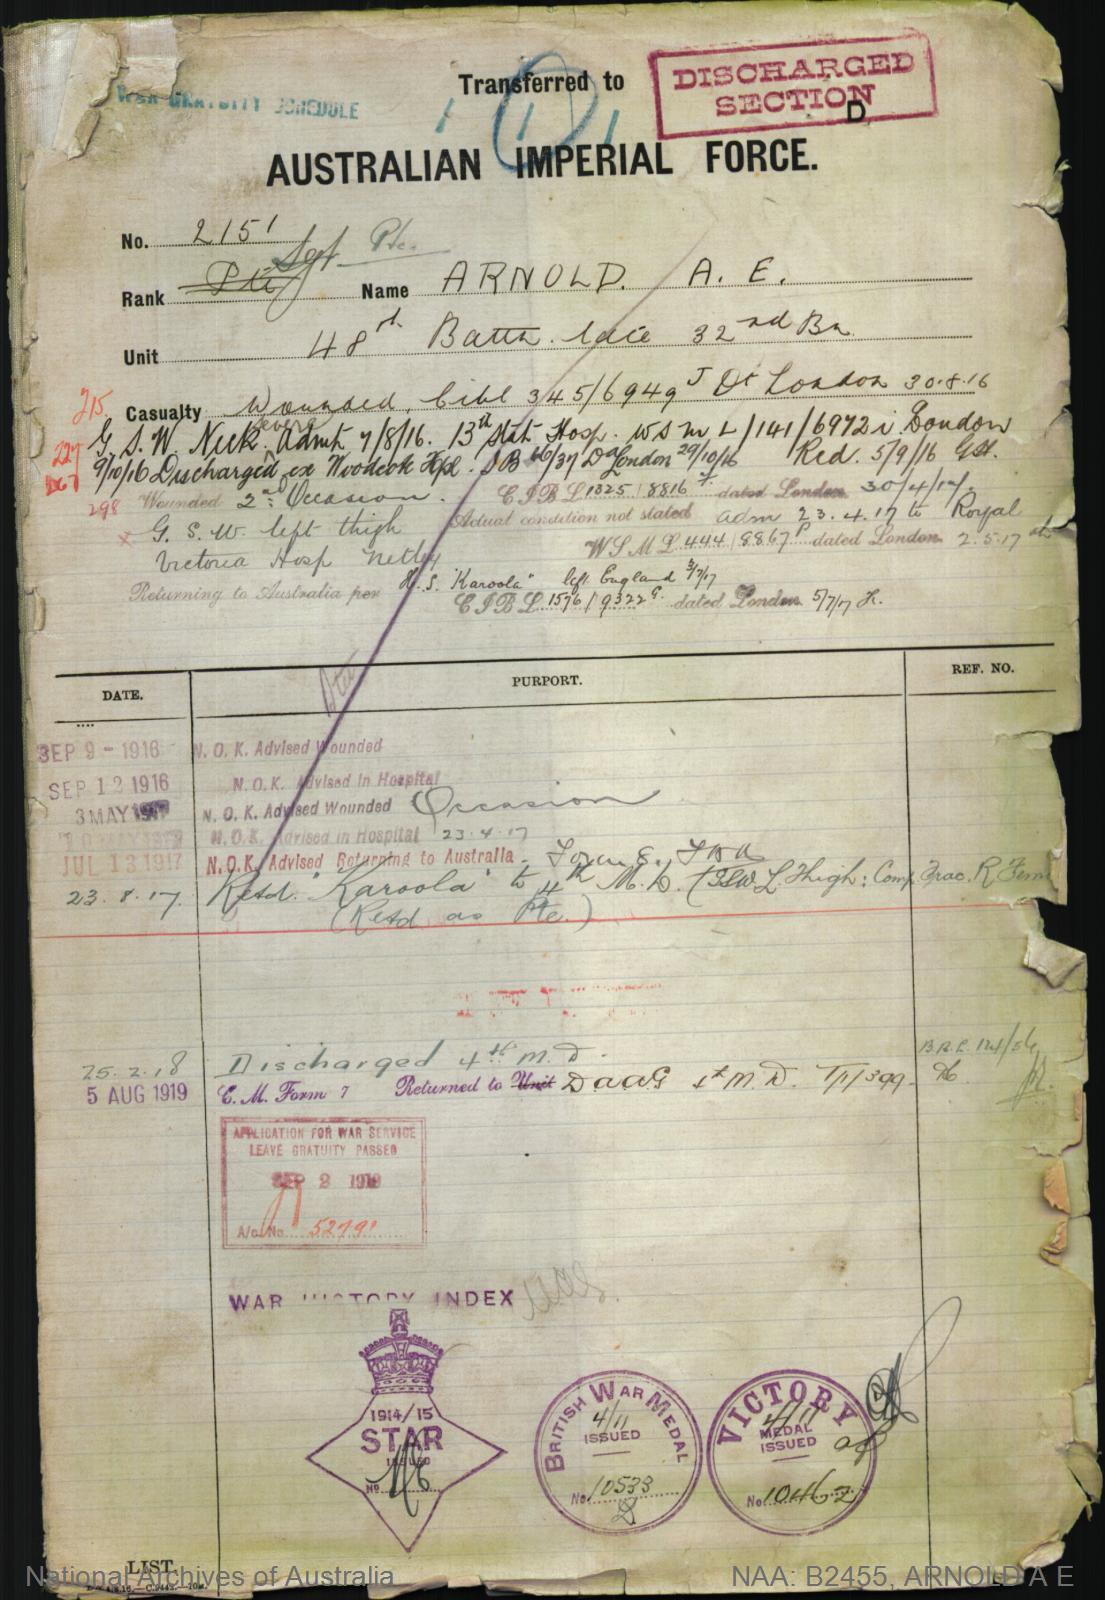 WAR GRATUITY SCHEDULE
Transferred to
DISCHARGED
SECTION
D
AUSTRALIAN IMPERIAL FORCE.
No. 2151
Rank Pte Sgt Pte. Name ARNOLD. A. E.
Unit 48th Battn. late 32nd Bn
215. Casualty Wounded, Cibl 345/6949 J Dt London 30.8.16
227 G.S.W. Neck. severe Admt. 7/8/16. 13th Stat. Hosp. WSML/141/6972 i London
267 9/10/16 Discharged ex Woodcote Hpl. Da London 29/10/16 Rcd. 5/9/16
298 Wounded 2nd Occasion. C I B L 1325/8816 dated London 30/4/17.
x G. S. W. left thigh Actual condition not stated adm 23.4.17 to Royal
Victoria Hosp Netley W S M L 444/8867 P dated London 2.5.17
Returning to Australia per H.S. "Karoola" left England 3/7/17
C I B L 1576/9322 G. dated London 5/7/17
DATE. PURPORT. REF. NO.
SEP 9 - 1916 N. O. K. Advised Wounded
SEP 12 1916 N. O. K. Advised in Hospital
3 MAY 1917 N. O. K. Advised Wounded Occasion
N. O. K. Advised in Hospital 23.4.17
JUL 13 1917 N. O. K. Advised Returning to Australia -
23. 8. 17. Retd. "Karoola" to 4th M. D. (GSW L. Thigh: Comp. Frac. R Fem
(Retd as Pte.)
25.2.18 Discharged 4th M. D.
5 AUG 1919 E. M. Form 7 Returned to Unit DAAG M. D.
APPLICATION FOR WAR SERVICE
LEAVE GRATUITY PASSED
SEP 2 1919
A/c. No. 52791
WAR HISTORY INDEX
1914/15
STAR
ISSUED
No.
BRITISH WAR MEDAL
4/11
ISSUED
No. 10533
VICTORY
4/11
MEDAL
ISSUED
No. 10462
LIST
National Archives of Australia
NAA: B2455, ARNOLD A E